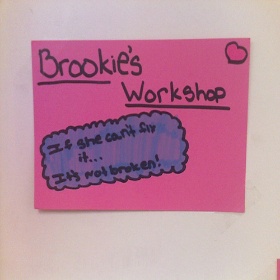 Brookie's
Workshop
If she can't fix
it...
It's not broken!